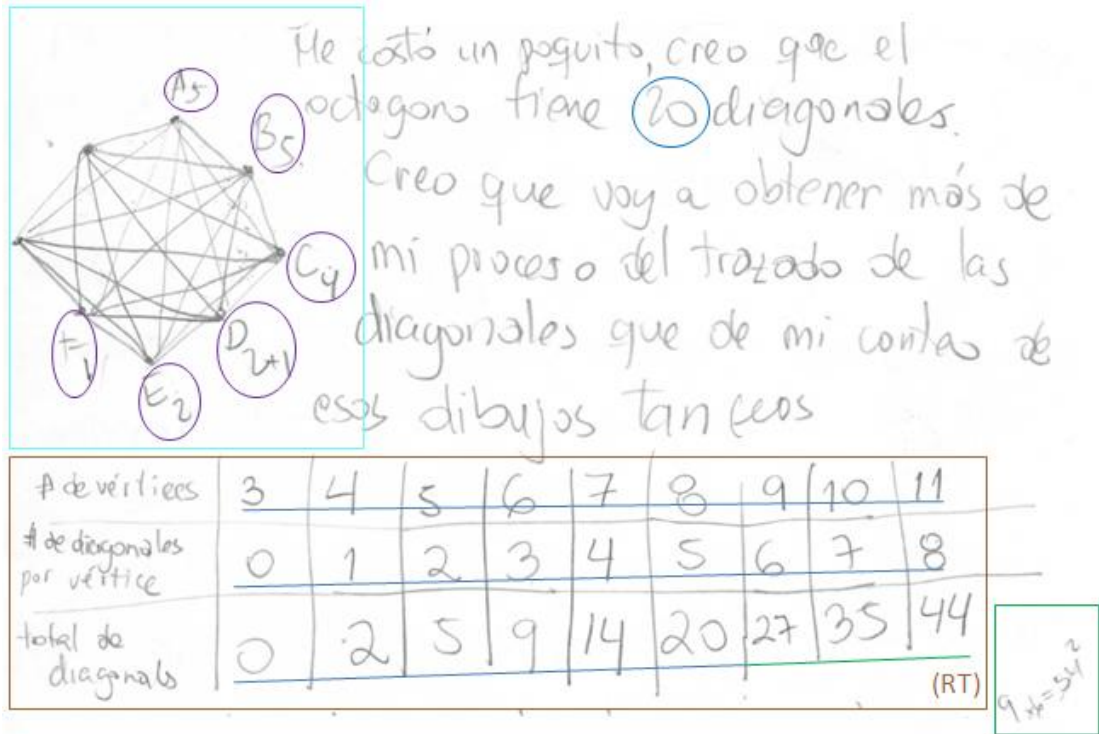 Me costó un poquito, creo que el
octagono tiene 20 diagonales.
Creo que voy a obtener más de
mi proceso del trazado de las
diagonales que de mi conteo de
esos dibujos tan feos
A5
B5
C4
D2+1
E2
F1
# de vértices 3 4 5 6 7 8 9 10 11
# de diagonales
por vértice 0 1 2 3 4 5 6 7 8
total de
diagonals 0 2 5 9 14 20 27 35 44
(RT)